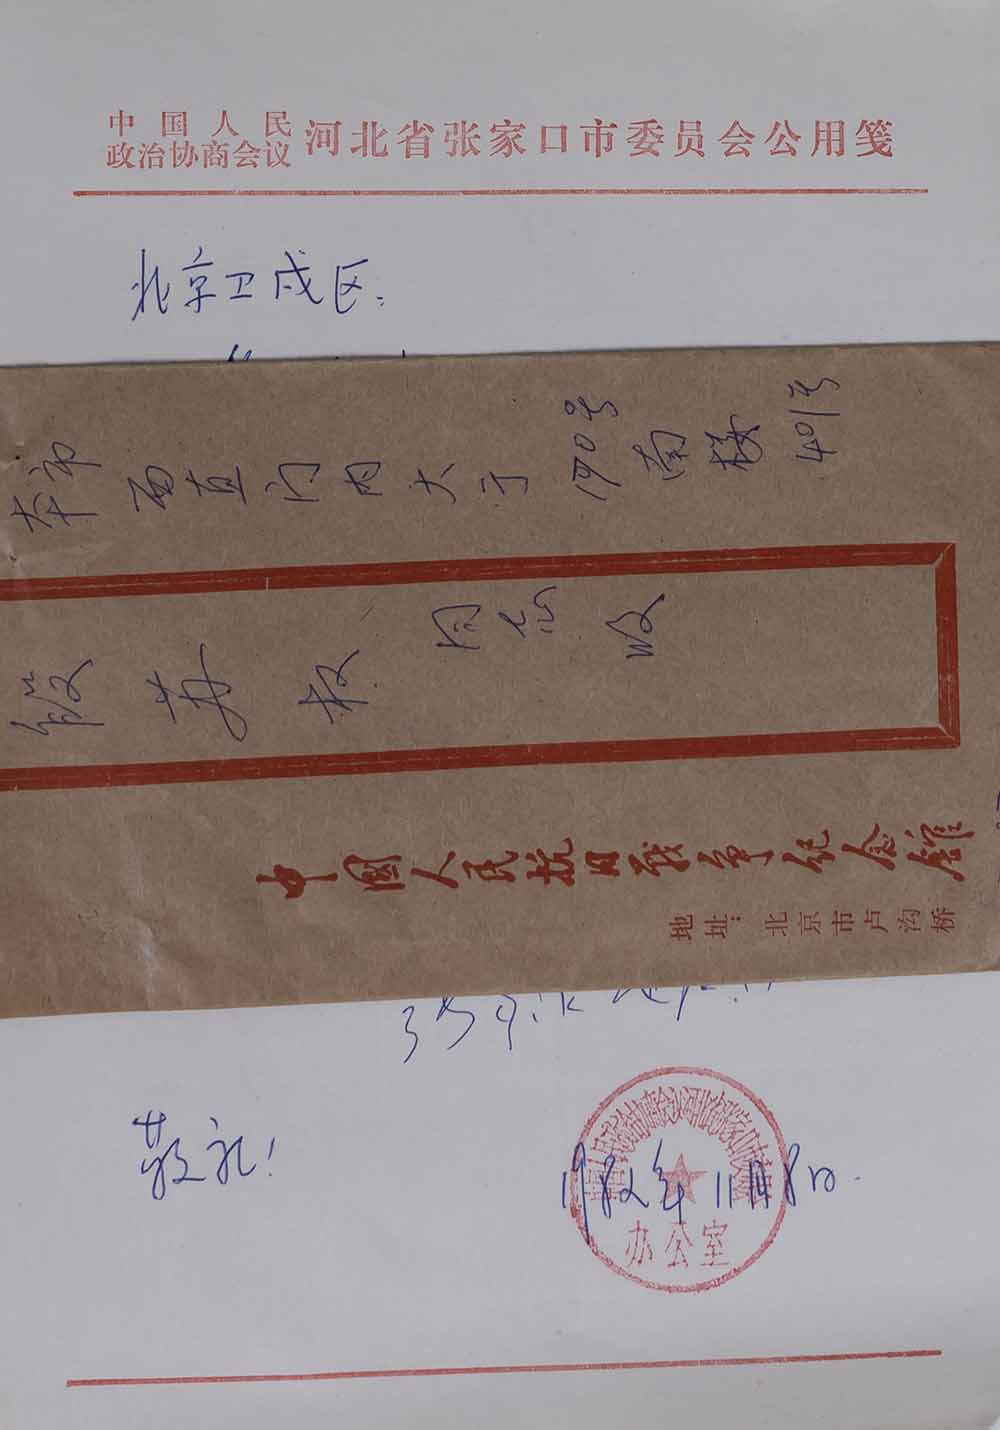 中国人民
政治协商会议 河北省张家口市委员会公用笺
北京卫戍区:
本市 西直门内大才190号南楼401号
段苏权 同志 收
中國人民抗日战争纪念館
地址：北京市卢沟桥
敬礼！
1982年11月8日.
办公室